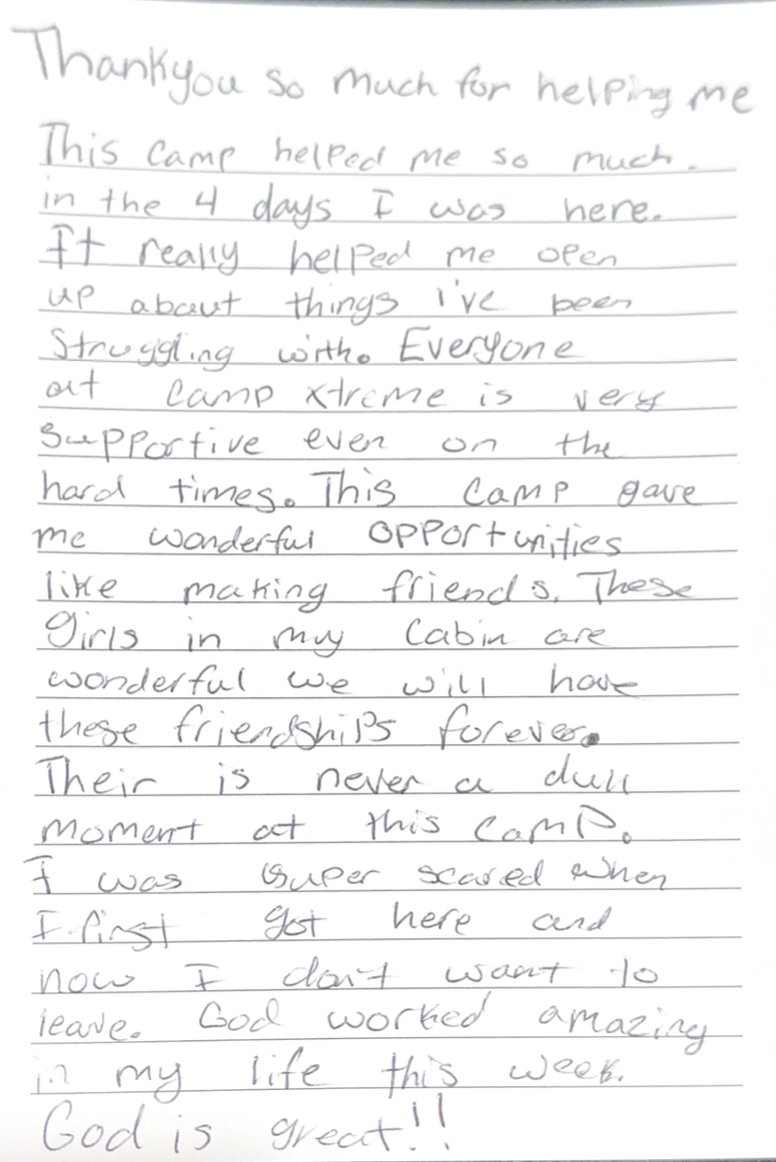 Thankyou so much for helping me
This camp helped me so much.
in the 4 days I was here.
It really helped me open
up about things I've been
Struggling with. Everyone
at camp xtreme is very
supportive even on the
hard times. This camp gave
me wonderful opportunities
like making friends. These
girls in my cabin are
wonderful we will have
these friendships forever.
Their is never a dull
moment at this camp.
I was super scared when
I first got here and
now I don't want to
leave. God worked amazing
in my life this week.
God is great!!